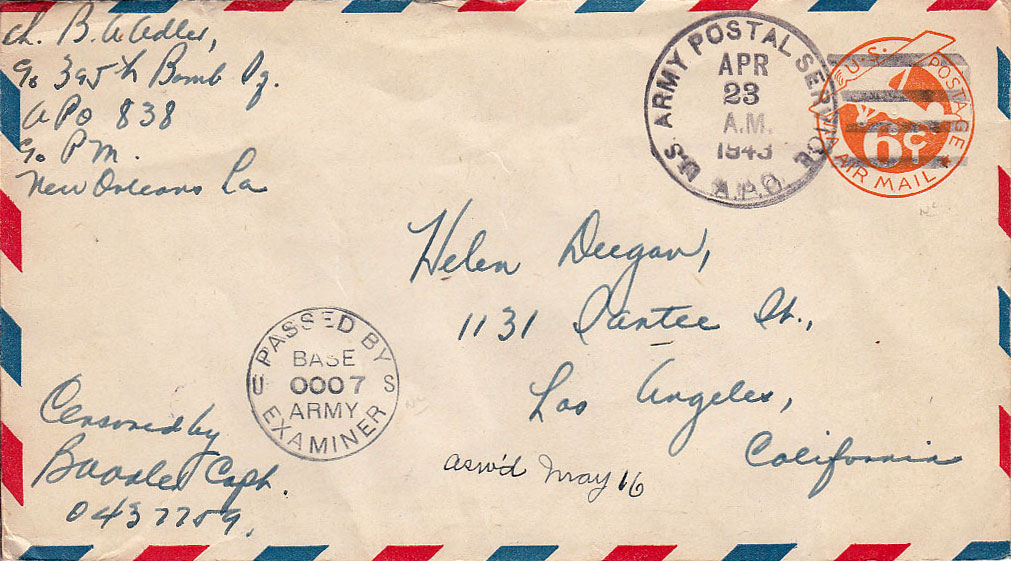 Ch. B. W Adler,
c/o 395th Bomb Sq.
APO 838
c/o P.M.
New Orleans La
U.S. ARMY POSTAL SERVICE
APR
23
A.M.
1943
A.P.O.
U.S. POSTAGE
6¢
VIA AIR MAIL
Helen Deegan,
1131 Santee St.,
Los Angeles,
California
PASSED BY
BASE
U 0007 S
ARMY
EXAMINER
Censored by
Capt.
0437709.
answ'd May 16